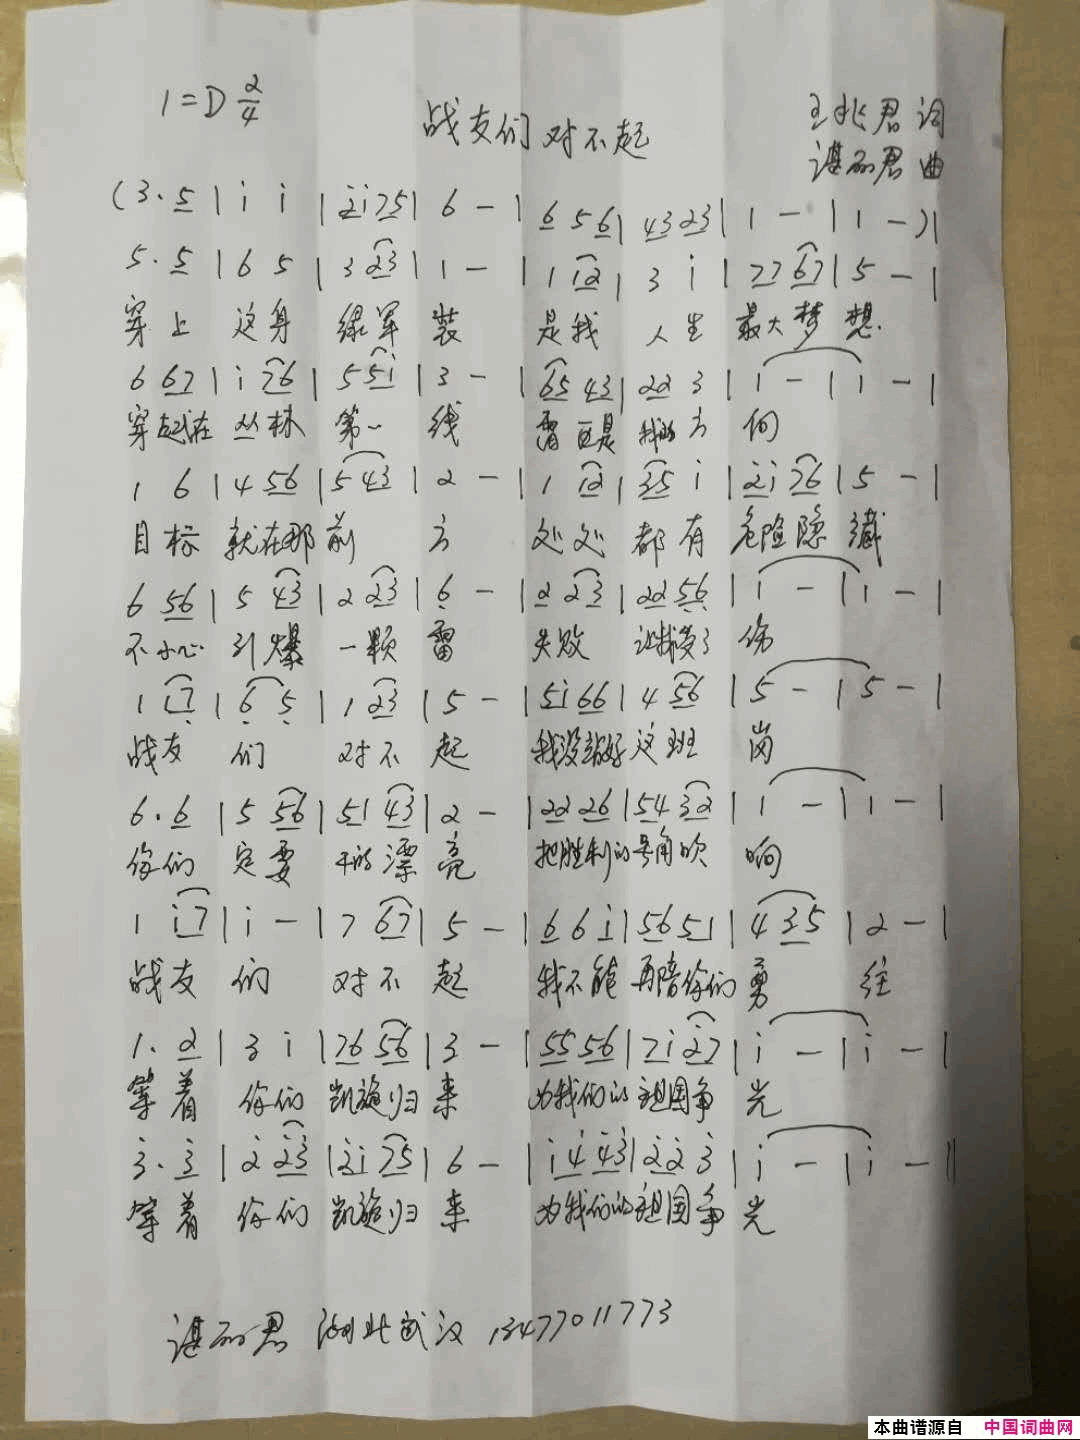 1=D 2/4
战友们对不起
王兆君 词
谌丽君 曲
(3. 5 | i i | 2i75 | 6 - | 6 5 6 | 43 23 | 1 - | 1 -) |
5. 5 | 6 5 | 3 23 | 1 - | 1 12 | 3 i | 77 67 | 5 - |
穿上 这身 绿军 装 是我 人生 最大梦 想.
6 67 | i 76 | 5 5i | 3 - | 65 43 | 22 3 | 1 - | 1 - |
穿越在 丛林 第一 线 雷区是 我的方 向
1 6 | 4 56 | 5 43 | 2 - | 1 12 | 35 i | 2i 76 | 5 - |
目标 就在那 前 方 处处 都有 危险隐 藏
6 56 | 5 43 | 2 23 | 6 - | 2 23 | 22 56 | 1 - | 1 - |
不小心 引爆 一颗 雷 失败 让我受了 伤
1 17 | 6 5 | 1 23 | 5 - | 5i 66 | 4 56 | 5 - | 5 - |
战友 们 对不 起 我没站好 这班 岗
6. 6 | 5 56 | 51 43 | 2 - | 22 26 | 54 32 | 1 - | 1 - |
你们 定要 干的漂 亮 把胜利的 号角吹 响
1 i7 | i - | 7 67 | 5 - | 6 6 i | 56 51 | 4 35 | 2 - |
战友 们 对不 起 我不能 再陪你们 勇 往
1. 2 | 3 i | 76 56 | 3 - | 55 56 | 7i 27 | i - | i - |
等着 你们 凯旋归 来 为我们的 祖国争 光
3. 3 | 2 23 | 2i 75 | 6 - | i4 43 | 22 3 | i - | i - ‖
等着 你们 凯旋归 来 为我们的 祖国争 光
谌丽君 湖北武汉 13477011773
本曲谱源自 中国词曲网